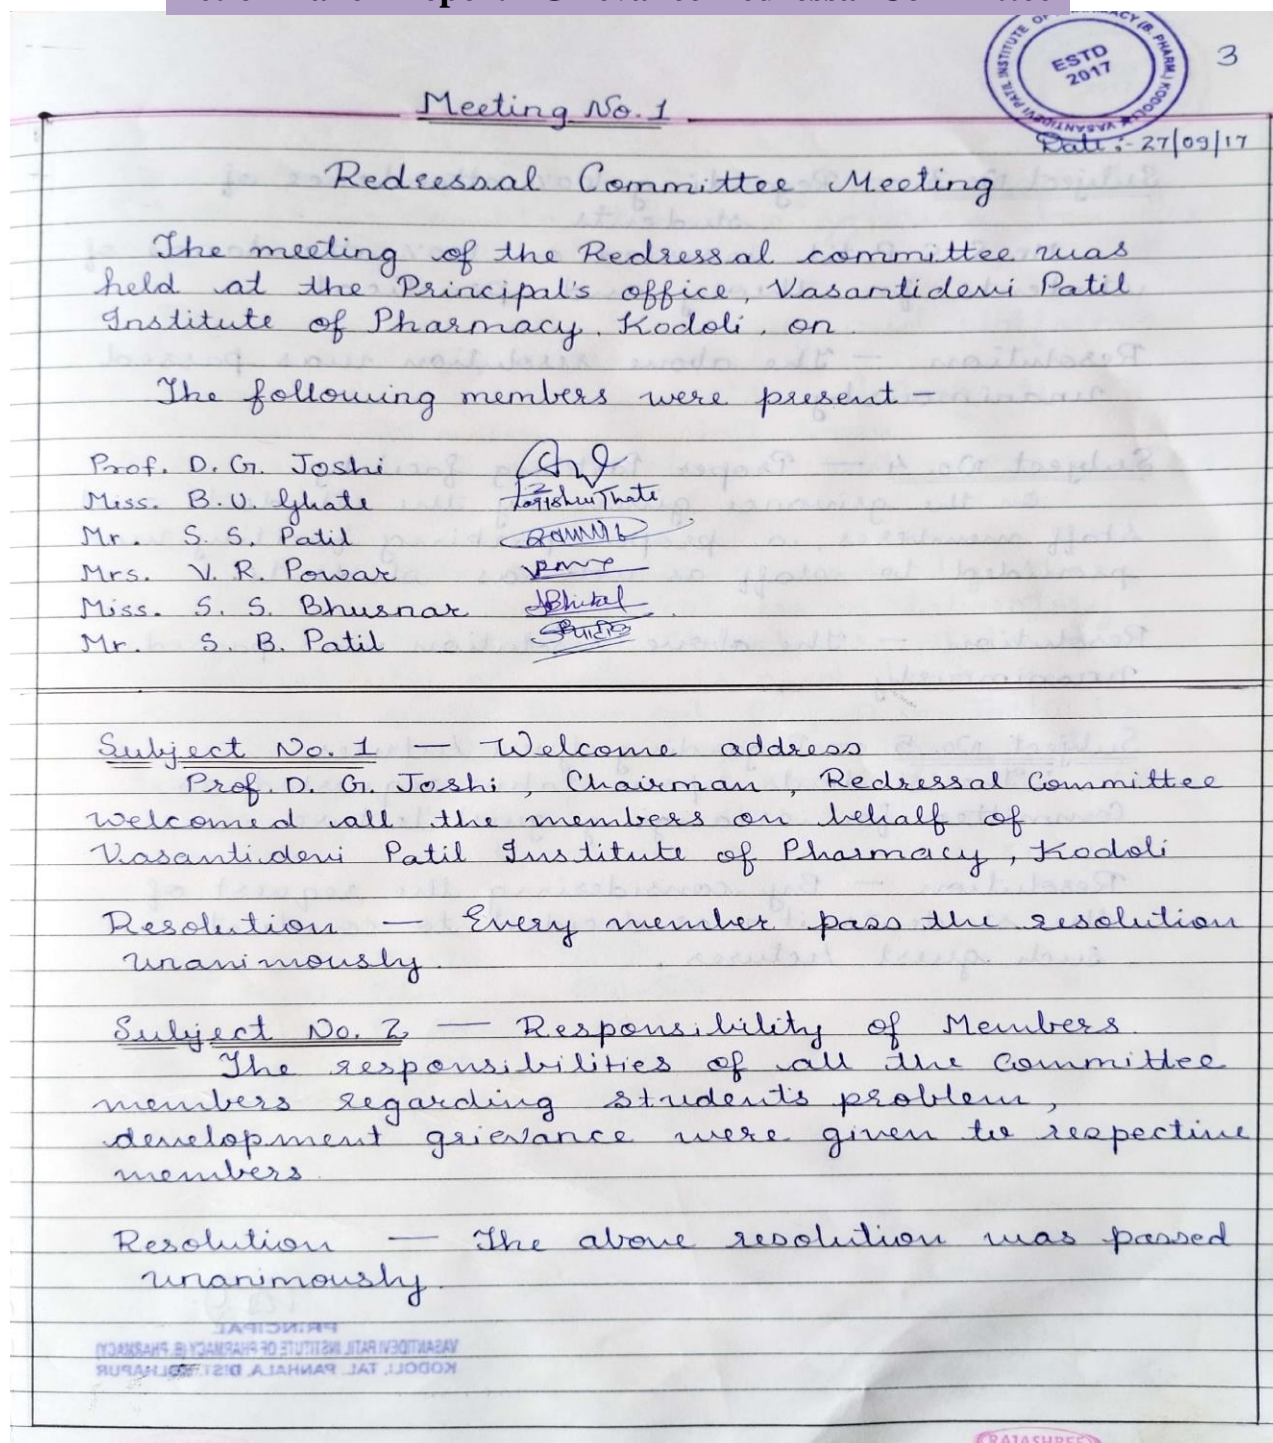 3
INSTITUTE OF PHARMACY (B. PHARM.) KODOLI VASANTIDEVI PATIL
ESTD
2017
Meeting No. 1
Date :- 27/09/17
Redressal Committee Meeting
The meeting of the Redressal committee was
held at the Principal's office, Vasantidevi Patil
Institute of Pharmacy, Kodoli, on
The following members were present –
Prof. D. G. Joshi
Miss. B. V. Ghate
Mr. S. S. Patil
Mrs. V. R. Powar
Miss. S. S. Bhusnar
Mr. S. B. Patil
Subject No. 1 — Welcome address
Prof. D. G. Joshi, Chairman, Redressal Committee
welcomed all the members on behalf of
Vasantidevi Patil Institute of Pharmacy, Kodoli
Resolution — Every member pass the resolution
unanimously.
Subject No. 2 — Responsibility of Members.
The responsibilities of all the Committee
members regarding student's problem,
development grievance were given to respective
members.
Resolution — The above resolution was passed
unanimously.
PRINCIPAL
VASANTIDEVI PATIL INSTITUTE OF PHARMACY (B. PHARMACY)
KODOLI, TAL. PANHALA, DIST. KOLHAPUR
RAJASHREE